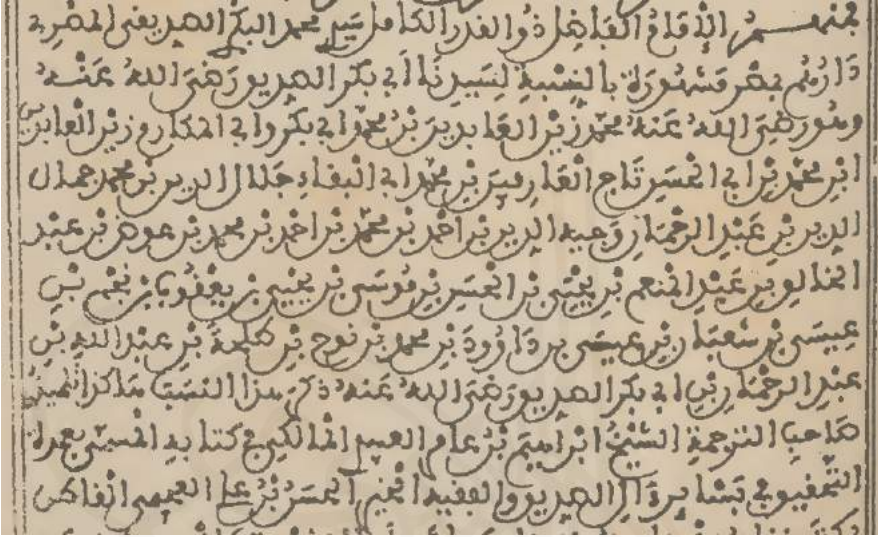 فمنهم الإمام الفاضل ذو القدر الكامل سيد محمد البكر الصديقي المصري
دارهم بمصر مشهورة بالنسبة لسيدنا أبي بكر الصديق رضي الله عنه
وهو رضي الله عنه محمد زين العابدين بن محمد أبي بكر وأبي المكارم زين العابدين
ابن محمد بن أبي الحسن تاج العارفين بن محمد أبي البقاء جلال الدين بن محمد جمال
الدين بن عبد الرحمان وجيه الدين بن أحمد بن محمد بن أحمد بن محمد بن عوض بن عبد
الخالق بن عبد المنعم بن يحيى بن الحسن بن موسى بن يحيى بن يعقوب بن نجم بن
عيسى بن شعبان بن عيسى بن داوود بن محمد بن نوح بن طلحة بن عبد الله بن
عبد الرحمان بن أبي بكر الصديق رضي الله عنه ذكر هذا النسب هاكذا
صاحب الترجمة الشيخ ابراهيم بن عامر العبيد المالكي في كتابه المسمى بعمدة
التحقيق في بشائر آل الصديق والفقيه الحسن بن علي العجمي